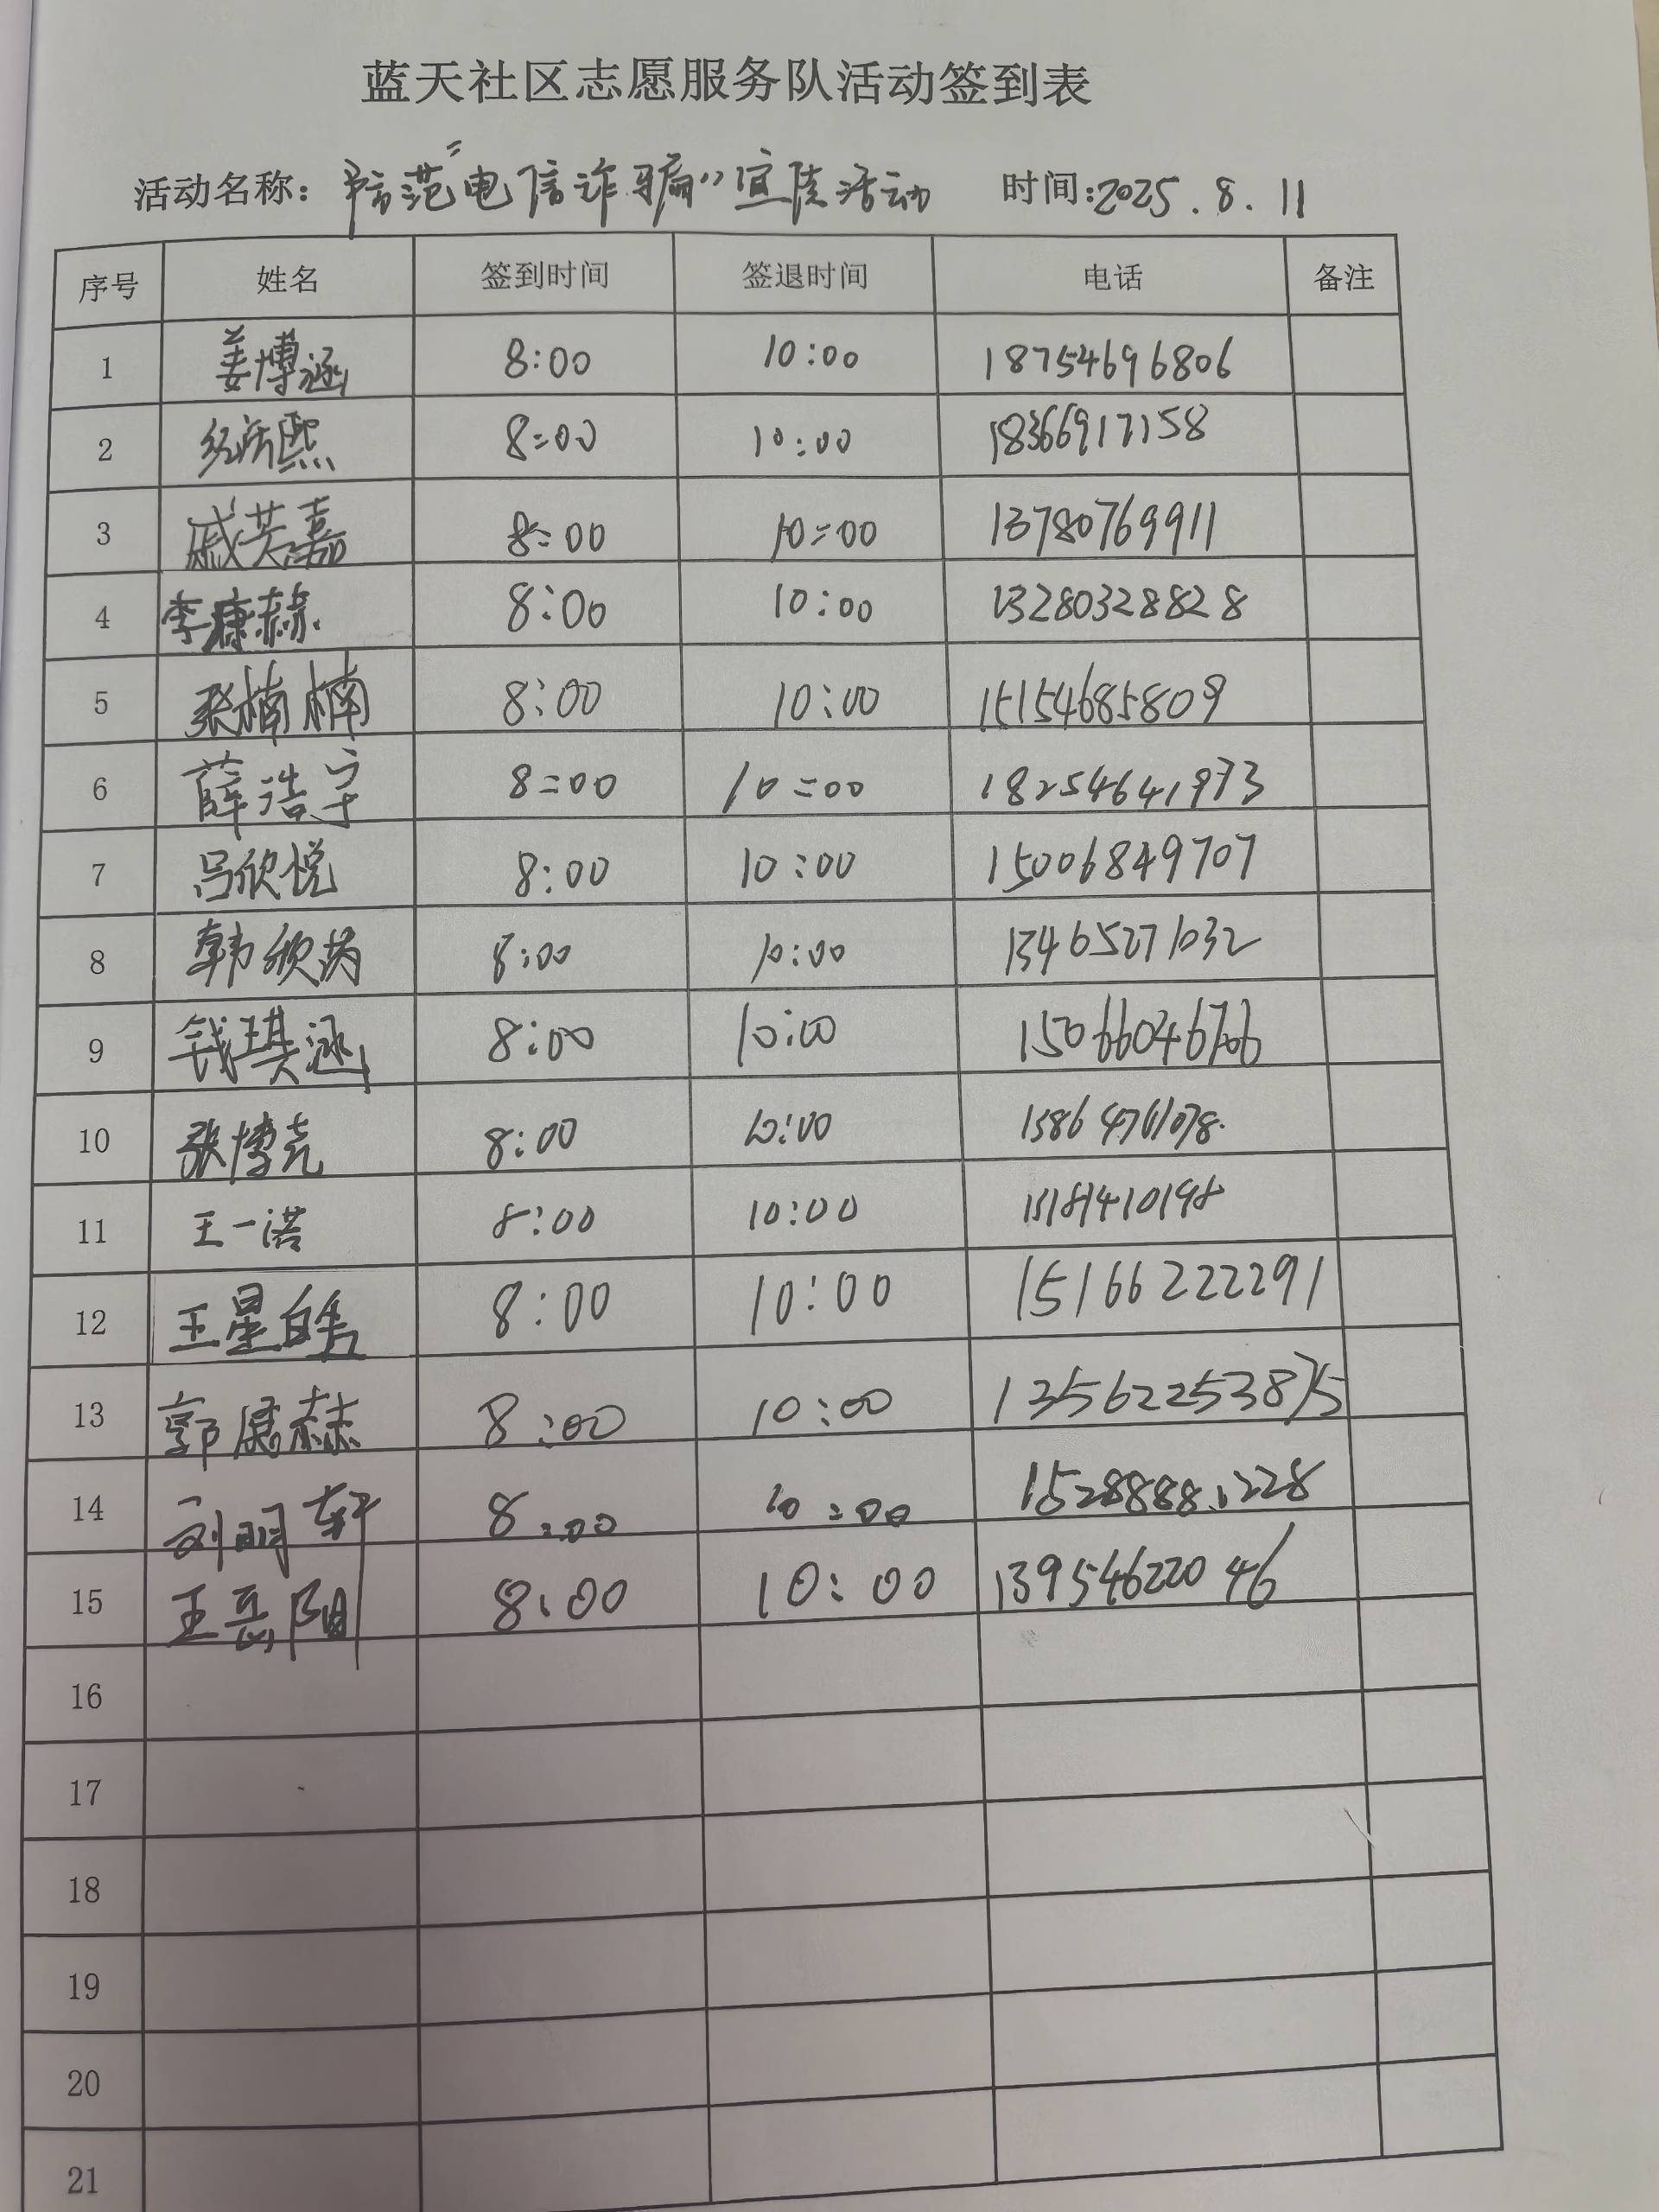 蓝天社区志愿服务队活动签到表
活动名称：防范"电信诈骗"宣传活动 时间:2025.8.11
序号 姓名 签到时间 签退时间 电话 备注
1 姜博涵 8:00 10:00 18754696806
2 8:00 10:00 18366917158
3 戚芙嘉 8:00 10:00 13780769911
4 李康赫 8:00 10:00 13280328828
5 张楠楠 8:00 10:00 15154685809
6 薛浩宇 8:00 10:00 18254641973
7 吕欣悦 8:00 10:00 15006849707
8 韩欣芮 8:00 10:00 13465271032
9 钱琪涵 8:00 10:00
10 8:00 10:00
11 王一诺 8:00 10:00
12 王星皓 8:00 10:00 15166222291
13 郭康赫 8:00 10:00 13562253875
14 刘明轩 8:00 10:00
15 王岳阳 8:00 10:00 13954622046
16
17
18
19
20
21